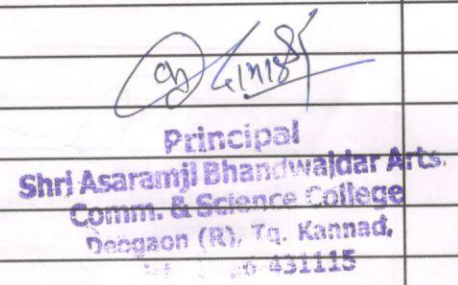 Principal
Shri Asaramji Bhandwaldar Arts.
Comm. & Science College
Deogaon (R), Tq. Kannad,
431115